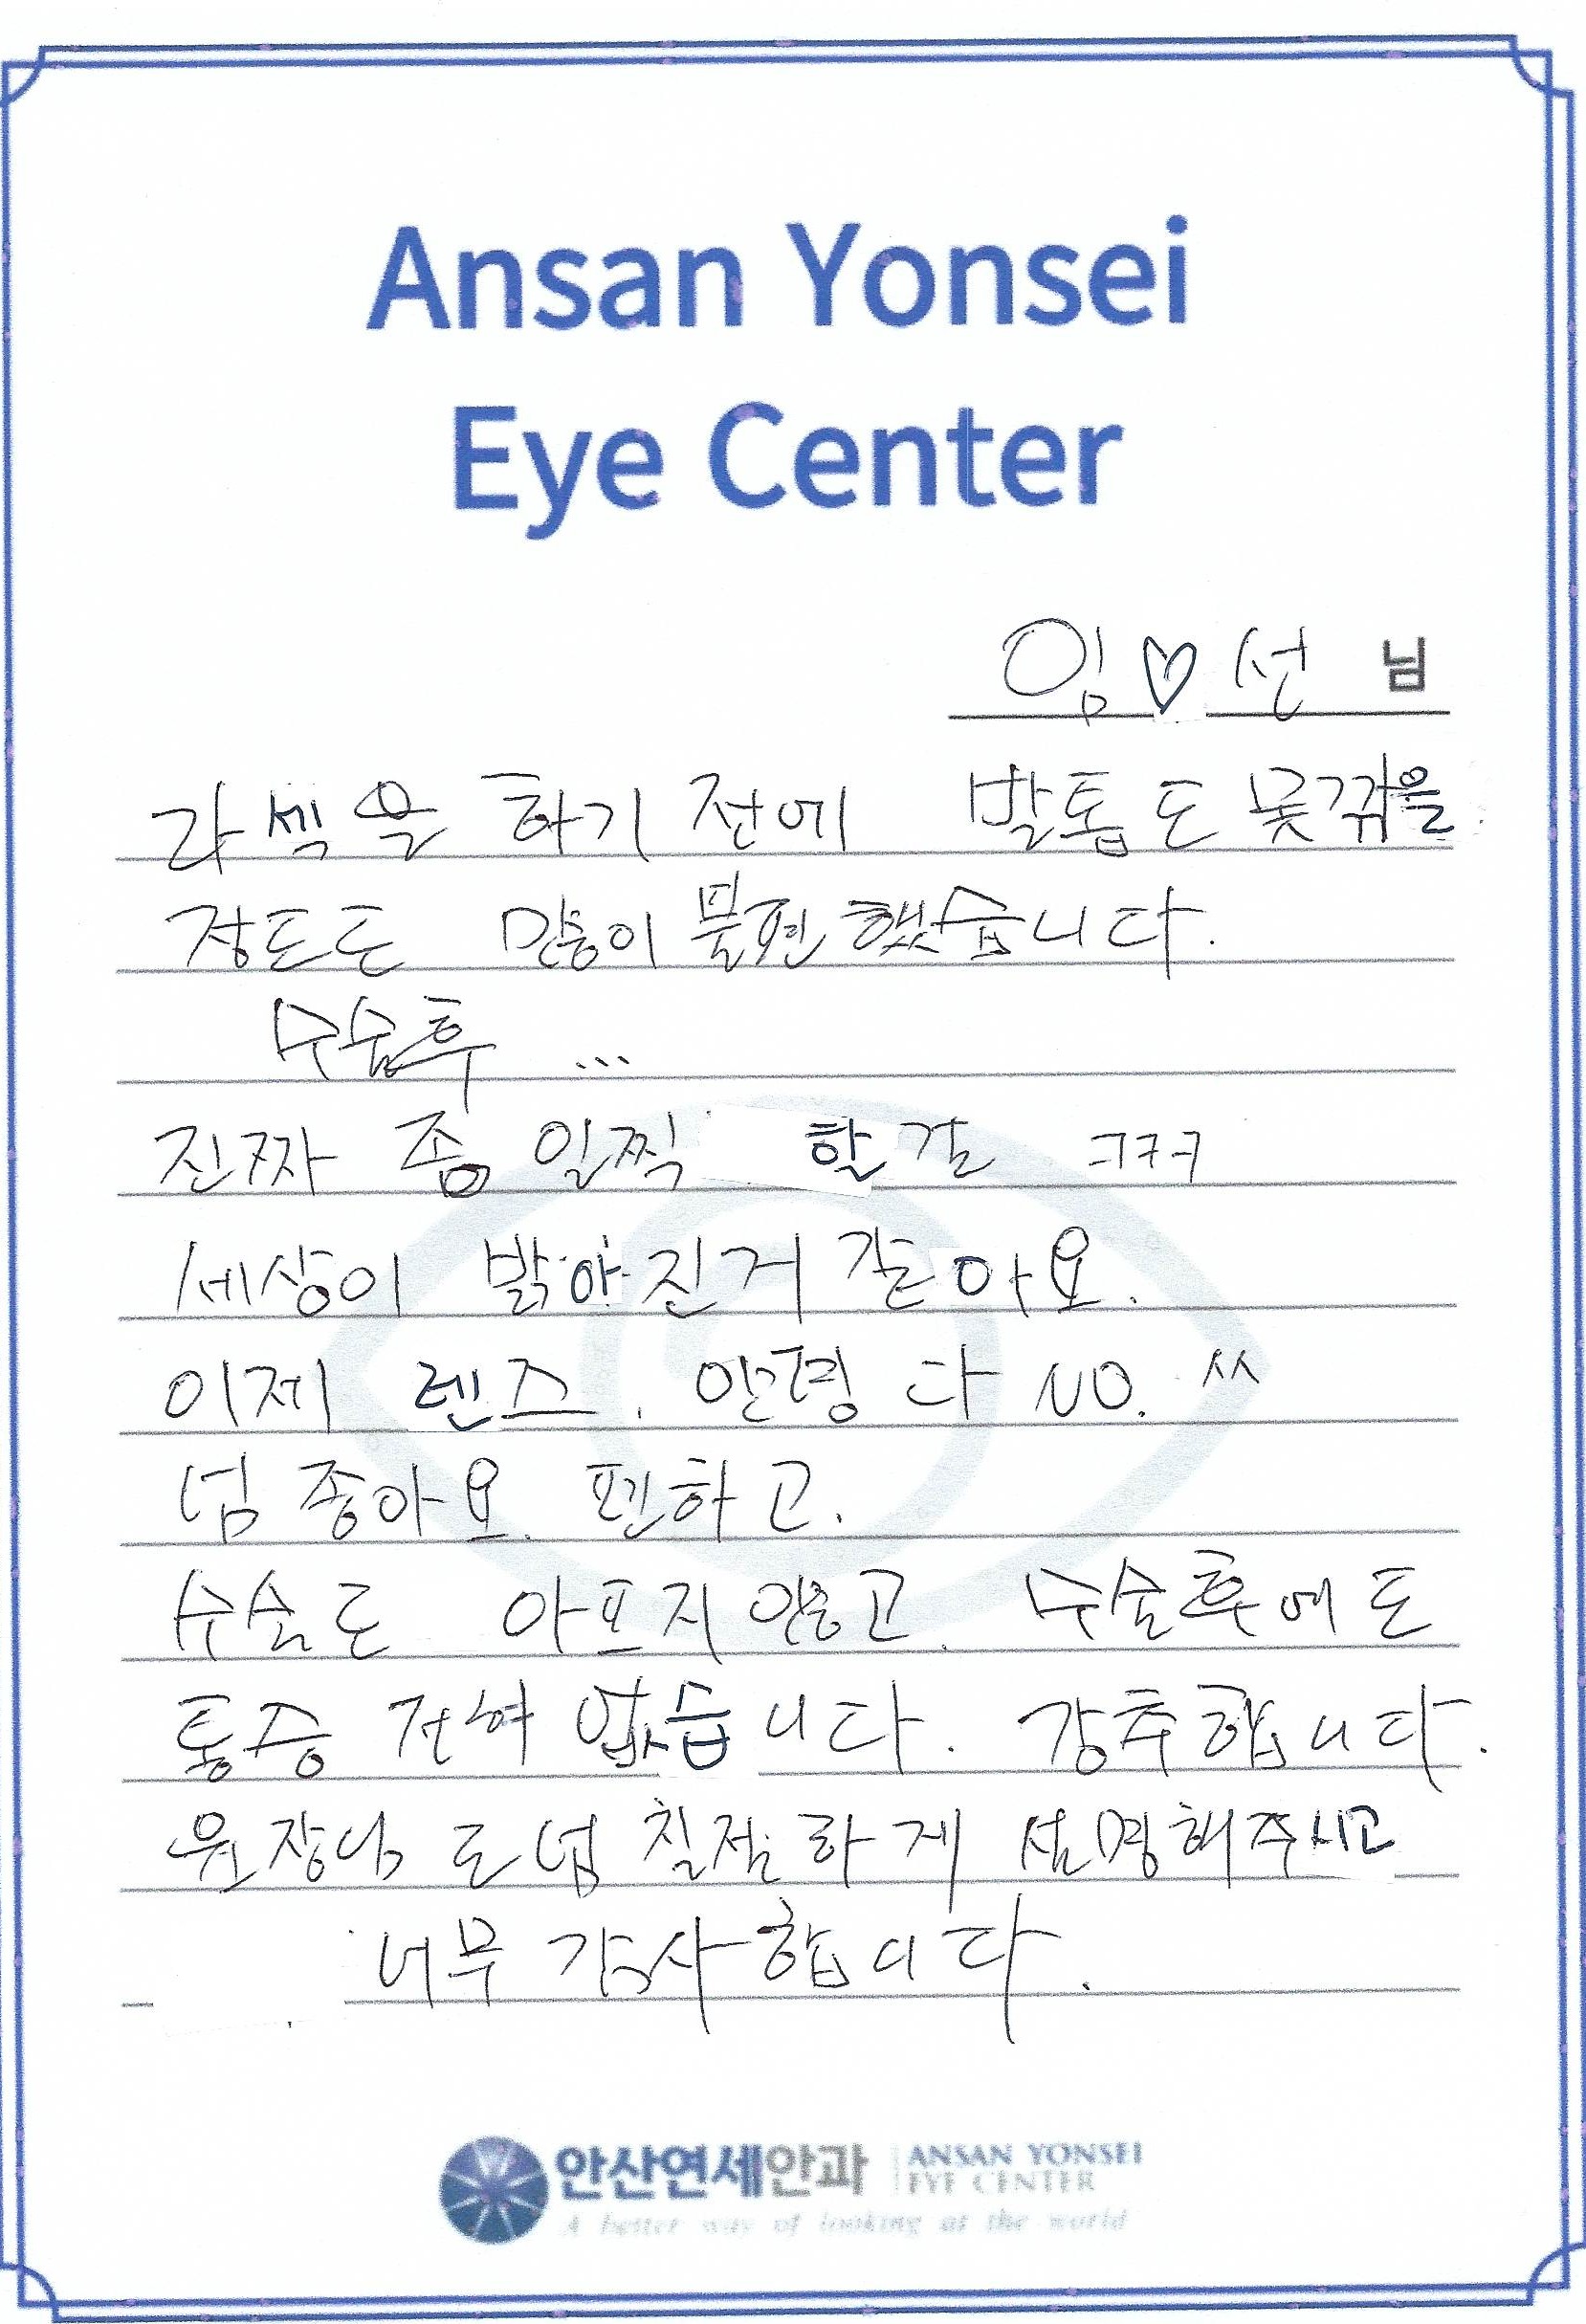 Ansan Yonsei
Eye Center
임♡선 님
라섹을 하기 전에 발톱도 못깎을
정도로 많이 불편했습니다.
수술후 ...
진짜 좀 일찍 할걸 ㅋㅋㅋ
세상이 밝아진거 같아요.
이제 렌즈. 안경 다 NO. ^^
넘 좋아요. 편하고.
수술도 아프지 않고. 수술후에도
통증 전혀 없습니다. 강추합니다.
원장님도 넘 친절하게 설명해주시고
너무 감사합니다.
안산연세안과 ANSAN YONSEI
EYE CENTER
A better way of looking at the world